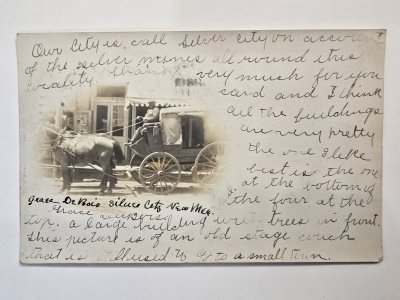 Our City is call Silver City on account
of the silver mines all round this
locality thank very much for your
card and I think
all the buildings
are very pretty
the one I like
best is the one
at the bottom of
the four at the
Grace DeBois Silver City New Mex.
top. a large building with trees in front.
this picture is of an old stage couch
that is still used to go to a small town.